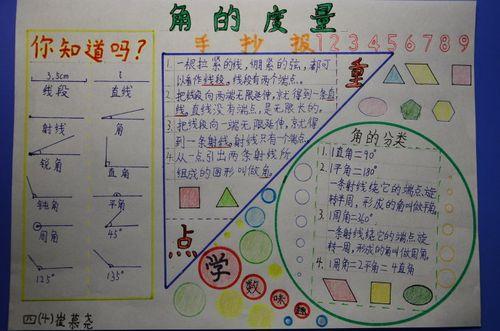 角的度量
手抄报
123456789
你知道吗？
3.3cm
线段
直线
射线
角
锐角
直角
钝角
平角
周角
45°
125°
135°
四(4)崔慕尧
1. 一根拉紧的线，绷紧的弦，都可
以看作线段。线段有两个端点。
2. 把线段向两端无限延伸，就得到一条直
线。直线没有端点，是无限长的。
3. 把线段向一端无限延伸，就得
到一条射线。射线只有一个端点。
4. 从一点引出两条射线所
组成的图形叫做角。
重
点
学
数
味
趣
角的分类
1. 1直角=90°
2. 1平角=180°
一条射线绕它的端点，旋
转半周，形成的角叫做平角。
3. 1周角=360°
一条射线绕它的端点，旋
转一周，形成的角叫做周角。
4. 1周角=2平角=4直角